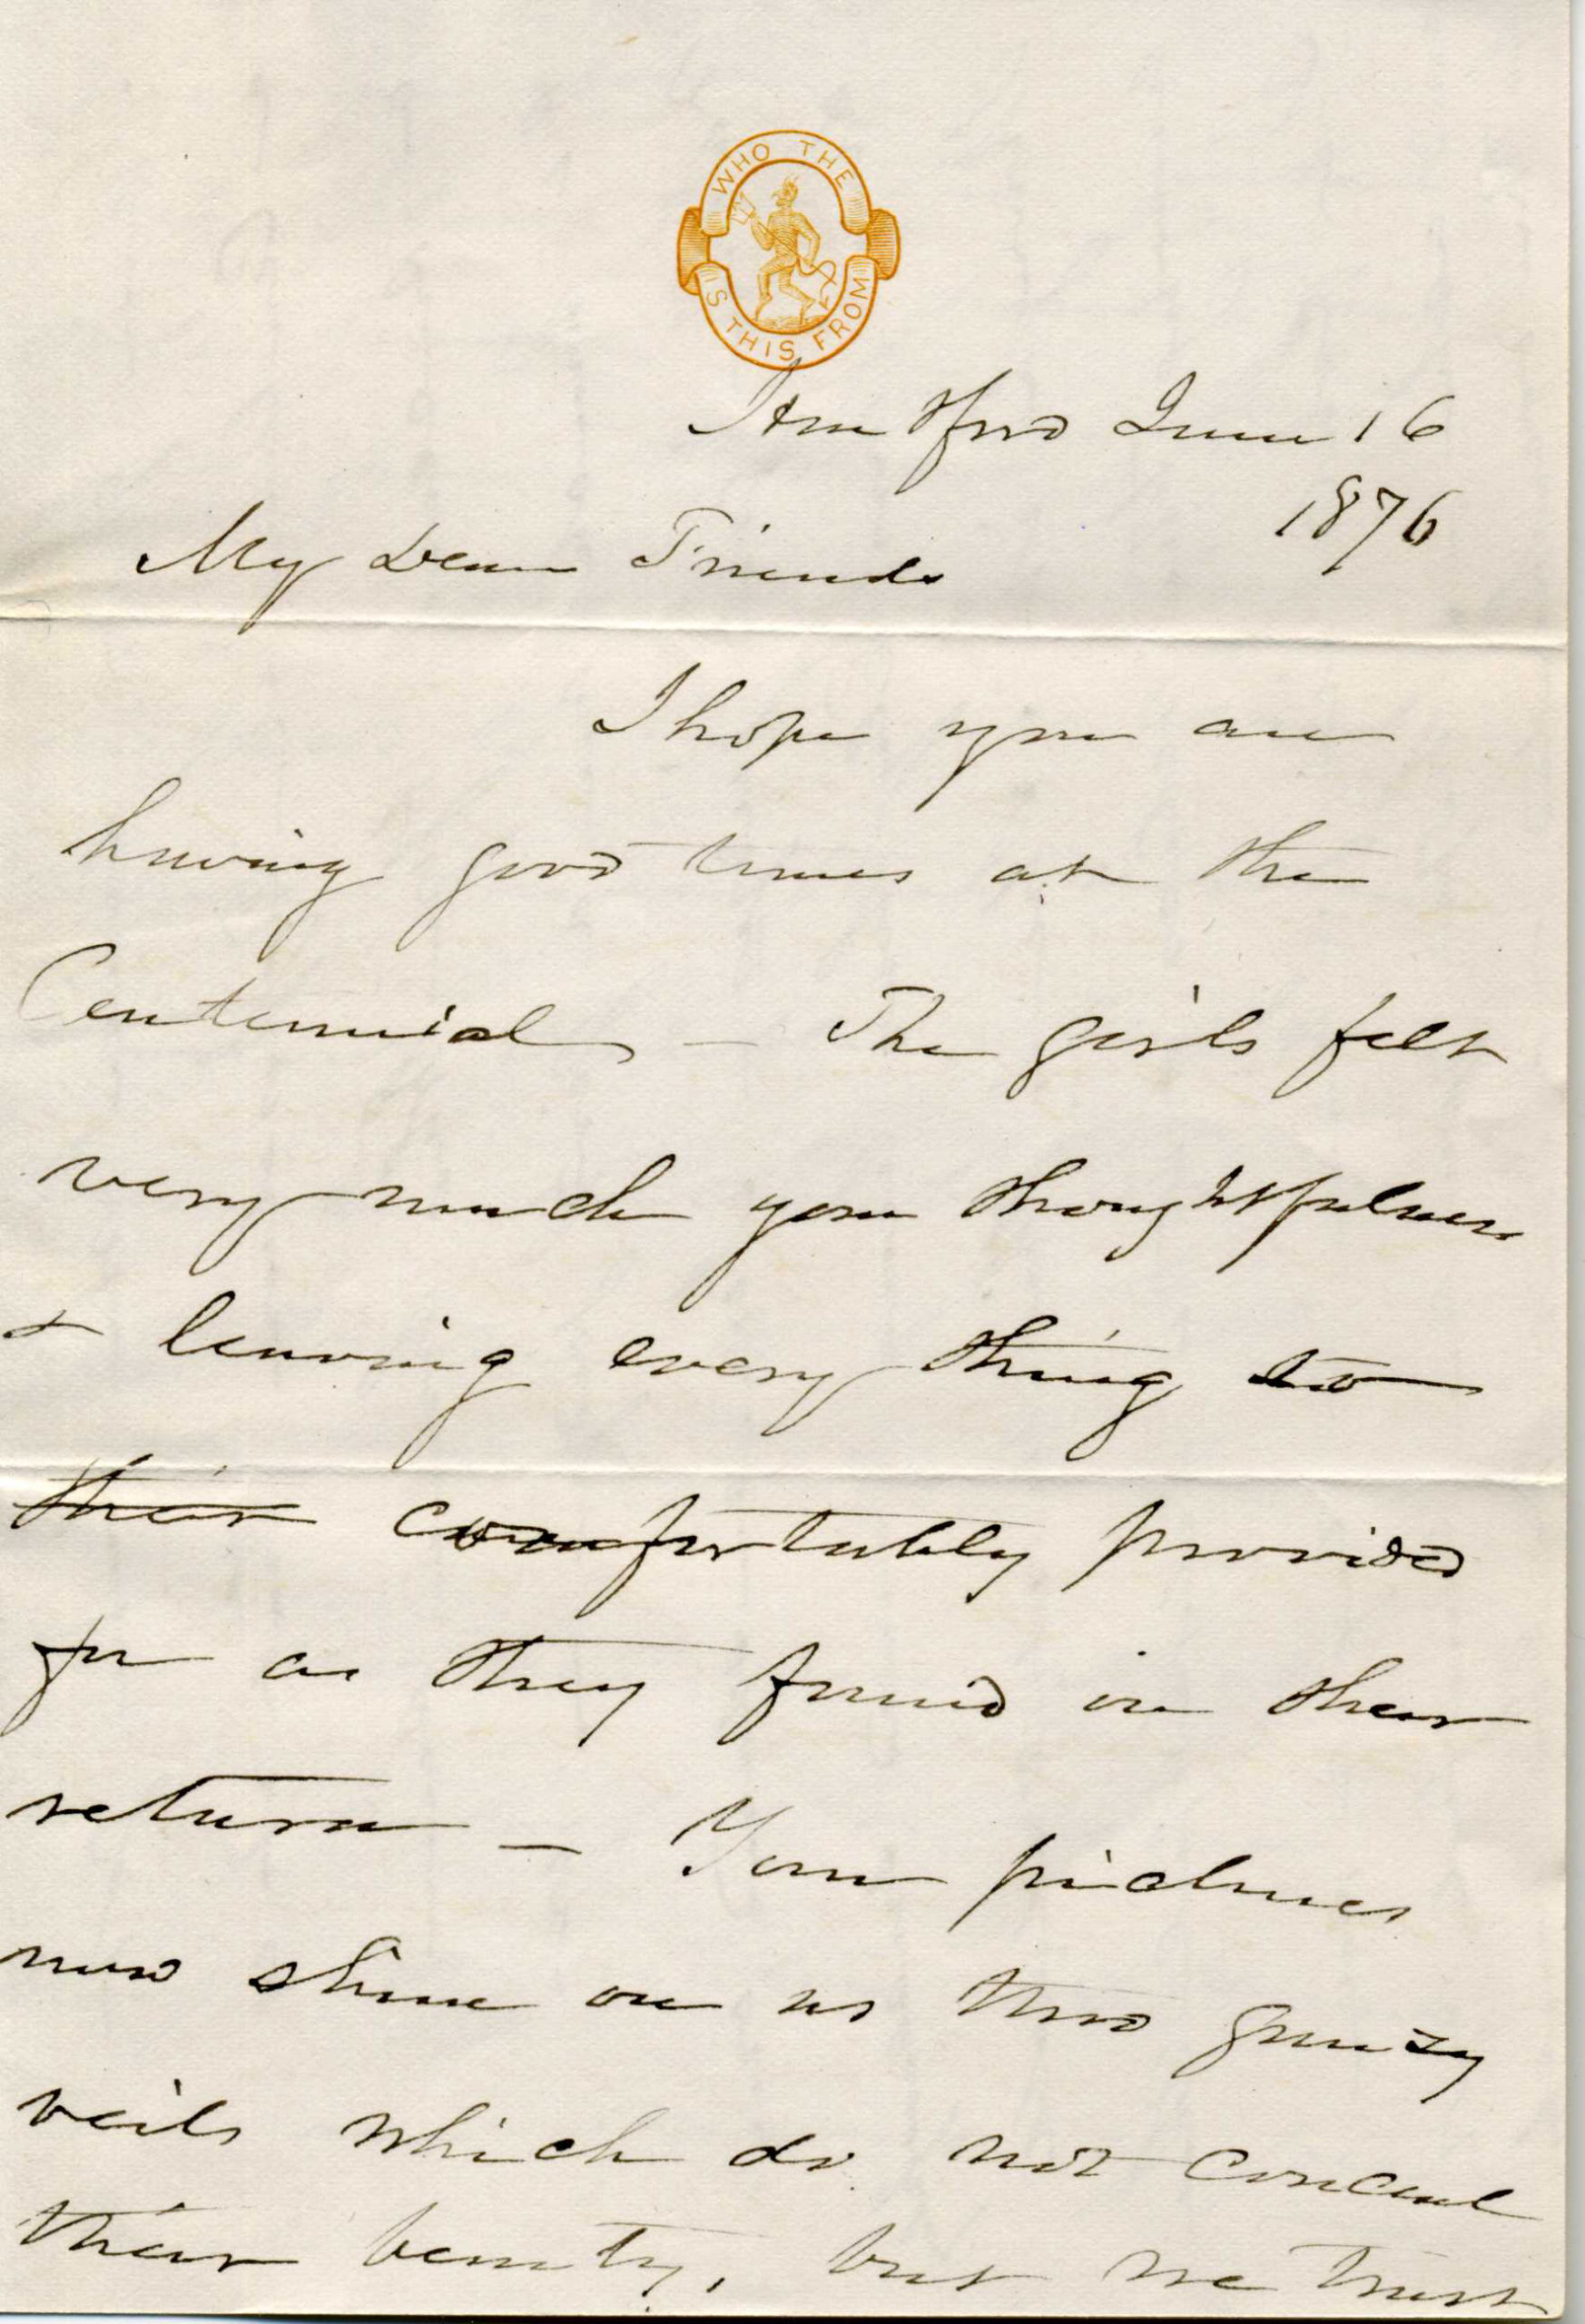 WHO THE
IS THIS FROM
Hartford June 16
1876
My Dear Friends
I hope you are
having good times at the
Centennial – The girls felt
very much your thoughtfulness
+ leaving every thing to
their comfortably provided
for as they found in their
return – Your pictures
now shine on us thro gauzy
veils which do not conceal
their beauty, but we trust